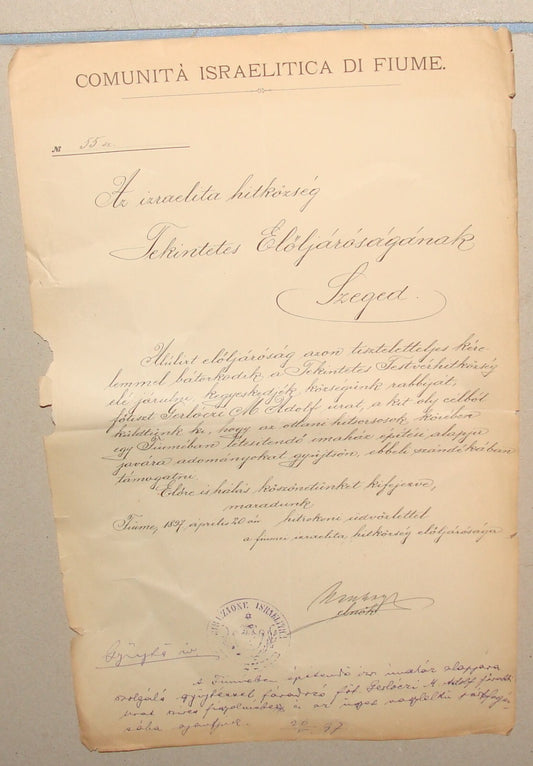 COMUNITÀ ISRAELITICA DI FIUME.
№ 55
Az izraelita hitközség
Tekintetes Előljáróságának
Szeged.
Alúlirt előljáróság azon tiszteletteljes kére
lemmel bátorkodik a Tekintetes Testvérhitközség
elé járulni kegyeskedjék községünk rabbiját,
főtiszt Gerlóczi M Adolf urat, a kit oly célból
küldtünk ki, hogy az ottani hitsorsosok körében
egy Fiúméban létesitendő imaház épitése alapja
javára adományokat gyűjtsön, ebbeli szándékában
támogatni
Előre is hálás köszönetünket kifejezve,
maradunk
Fiúme, 1897 április 20 án hitrokoni üdvözlettel
a fiumei izraelita hitközség előljárósága
elnök
ISRAELITICA
Gyűjtő ív
A Fiúmében építendő izr. imaház alapjára
szolgáló gyűjtéssel fáradozó főt. Gerlóczi M Adolf
urat szives
ajánljuk. 97